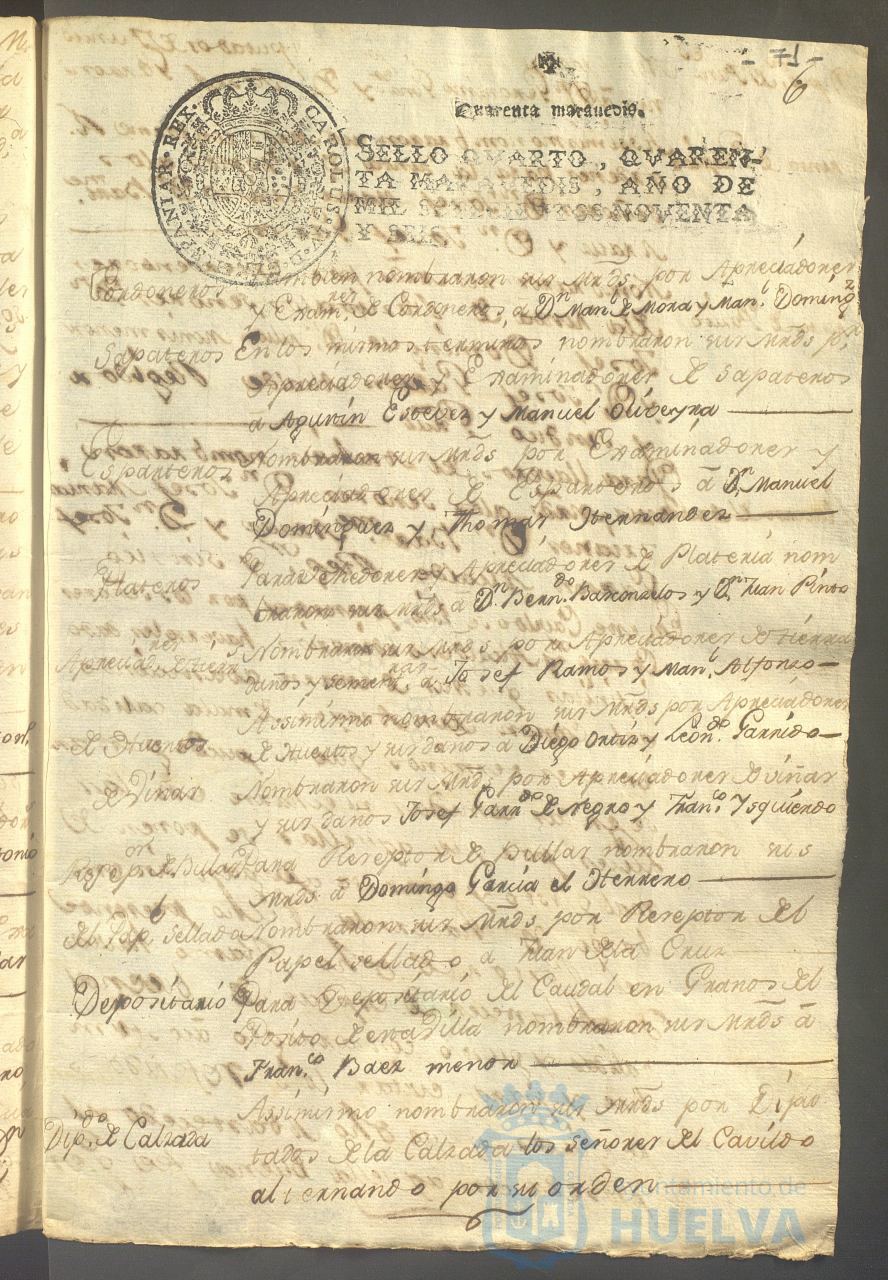 - 71 -
6
Quarenta maravedis.
SELLO QVARTO, QVAREN-
TA MARAVEDIS, AÑO DE
MIL SETECIENTOS NOVENTA
Y SEIS.
CAROLUS IV D.G. HISPANIAR. REX.
Cordoneros
Tambien nombraron sus Mrds por Apreciadores
y Exam.res de Cordoneros, á Dn. Man.l de Mora y Man.l Doming.z
Sapateros
En los mismos terminos nombraron sus Mrds p.r
Apreciadores y Examinadores de Sapateros
á Agustin Estevez y Manuel Oliveyra
Esparteros
Nombraron sus Mrds por Examinadores y
Apreciadores de Esparteros á Dn. Manuel
Dominguez y Thomas Hernandez
Plateros
Para Vehedores y Apreciadores de Plateria nom
braron sus Mrds á Dn. Bern.do Barconzelos y Dn. Juan Pinto
Apreciad.res de tierr.
Nombraron sus Mrds por Apreciadores de tierra
daños y sement.ras á Josef Ramos y Man.l Alfonzo
de Huertos
Assimismo nombraron sus Mrds por Apreciadores
de Huertos y sus daños a Diego Ortiz y Leon.do Garrido
de Viñas
Nombraron sus Mrds por Apreciadores de viñas
y sus daños Josef Garr.do de Negro y Fran.co Ysquierdo
Resep.or de Bulas
Para Reseptor de Bullas nombraron sus
Mrds á Domingo Garcia el Herrero
del Pap.l Sellado
Nombraron sus Mrds por Reseptor del
Papel sellado a Juan de la Cruz
Depositario
Para Depositario del Caudal en Granos del
Posito de esta Villa nombraron sus Mrds á
Fran.co Baez menor
Dip.do de Calzada
Assimismo nombraron sus Mrds por Dipu
tados de la Calzada los señores del Cavildo
alternando por su orden
Ayuntamiento de
HUELVA